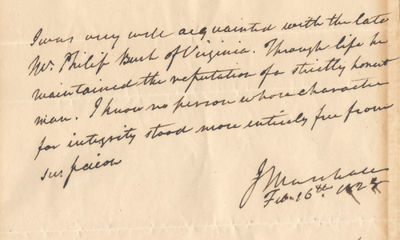 I was very well acquainted with the late
Mr. Philip Bush of Virginia. Through life he
maintained the reputation of a strictly honest
man. I know no person whose character
for integrity stood more entirely free from
suspicion
J Marshall
Feb. 26th 182